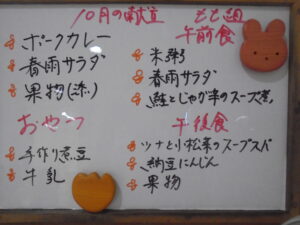 10月の献立
ポークカレー
春雨サラダ
果物(添)
おやつ
手作り煮豆
牛乳
もも組
午前食
米粥
春雨サラダ
鮭とじゃが芋のスープ煮
午後食
ツナと小松菜のスープスパ
納豆にんじん
果物